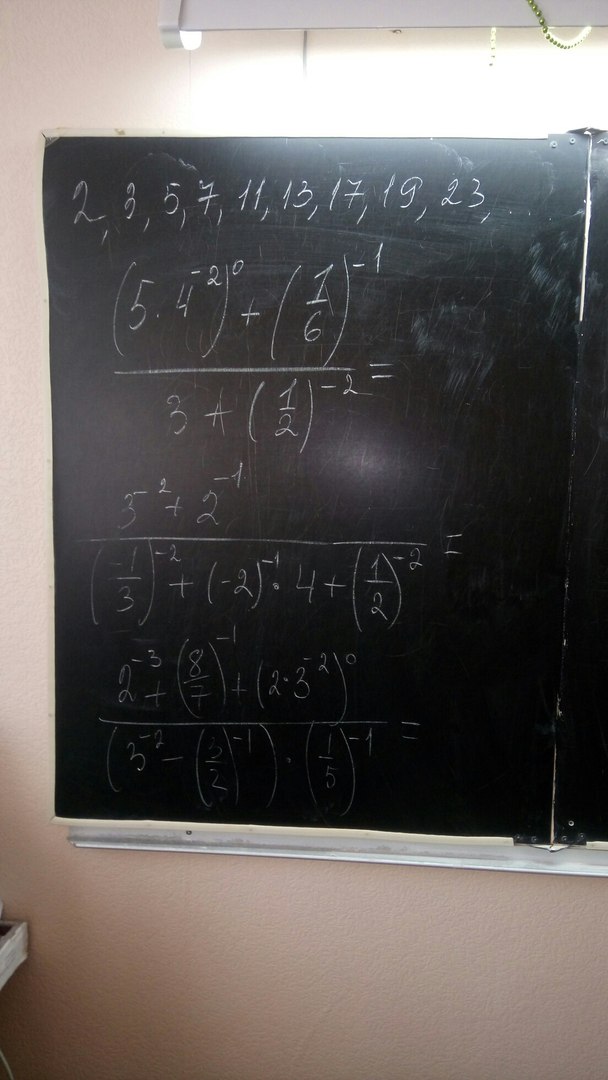 2, 3, 5, 7, 11, 13, 17, 19, 23, ...
(5 · 4⁻²)⁰ + (1/6)⁻¹
3 + (1/2)⁻² =
3⁻² + 2⁻¹
(-1/3)⁻² + (-2)⁻¹ · 4 + (1/2)⁻² =
2⁻³ + (8/7)⁻¹ + (2 · 3⁻²)⁰
(3⁻² - (3/2)⁻¹) · (1/5)⁻¹ =